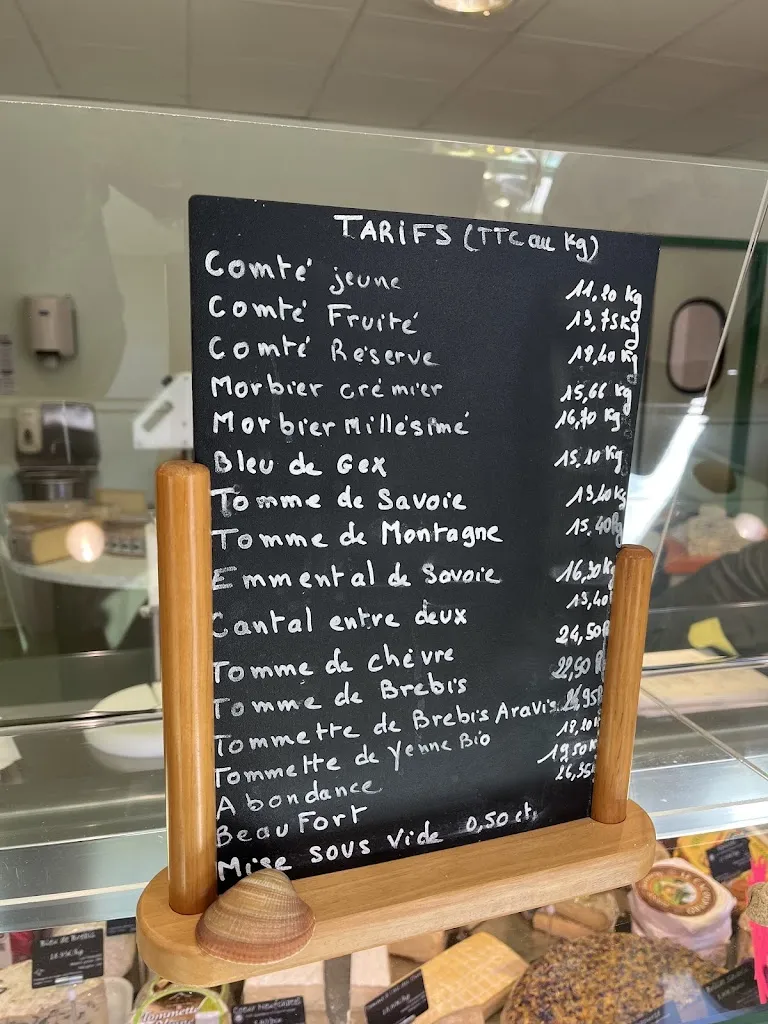 TARIFS (TTC au Kg)
Comté jeune 11,20 Kg
Comté Fruité 13,75 Kg
Comté Réserve 18,40 Kg
Morbier crémier 15,66 Kg
Morbier Millésimé 16,70 Kg
Bleu de Gex 15,10 Kg
Tomme de Savoie 13,40 Kg
Tomme de Montagne 15.40 Kg
Emmental de Savoie 16,30 Kg
Cantal entre deux 13,40
Tomme de chèvre 24,50
Tomme de Brebis 22,90
Tommette de Brebis Aravis
Tommette de Yenne Bio 18,20
Abondance 19,50
BeauFort 26,95
Mise sous vide 0,50 ct,
Bleu de Brebis
Coeur Neufchatel